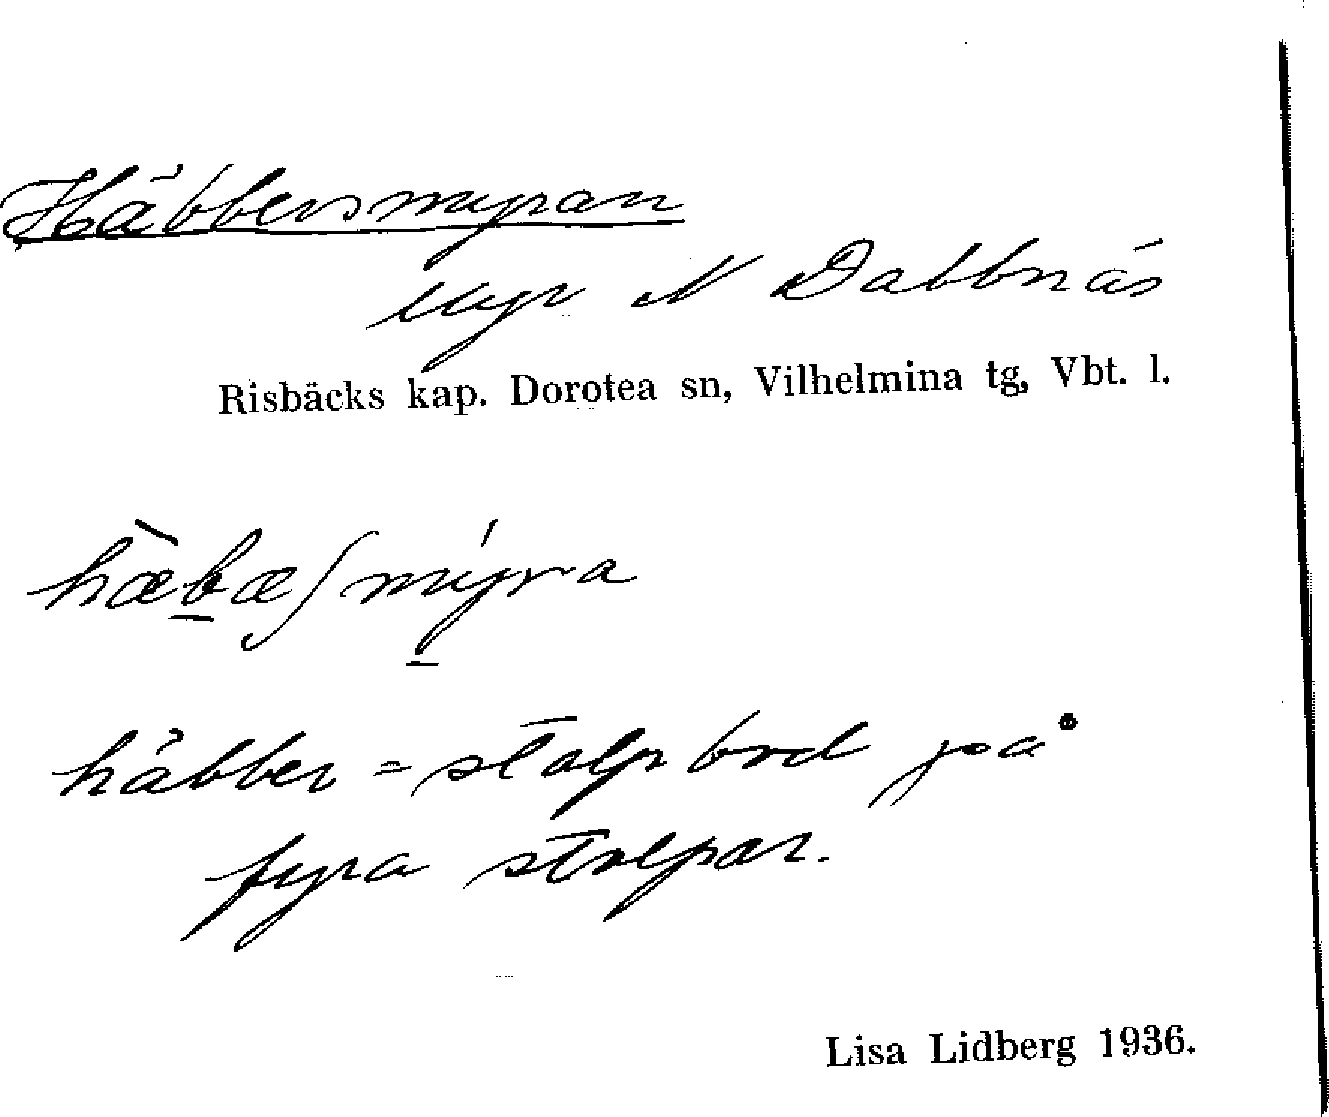 Häbbersmyran
Myr N Dabbnäs
Risbäcks kap. Dorotea sn, Vilhelmina tg, Vbt. l.
hæ̀bæʃmýra
häbber = stolpbod på
fyra stolpar.
Lisa Lidberg 1936.